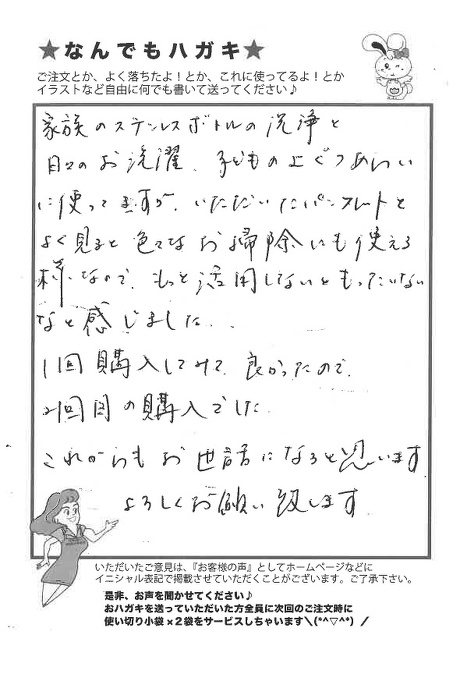 ★なんでもハガキ★
ご注文とか、よく落ちたよ！とか、これに使ってるよ！とか
イラストなど自由に何でも書いて送ってください♪
家族のステンレスボトルの洗浄と
日々のお洗濯、子どもの上ぐつあらい
に使ってますが、いただいたパンフレットを
よく見ると色々なお掃除にも使える
様なので、もっと活用しないともったいない
なと感じました。
1回購入してみて、良かったので、
2回目の購入でした。
これからもお世話になると思います
よろしくお願い致します
いただいたご意見は、『お客様の声』としてホームページなどに
イニシャル表記で掲載させていただくことがございます。ご了承下さい。
是非、お声を聞かせてください♪
おハガキを送っていただいた方全員に次回のご注文時に
使い切り小袋×２袋をサービスしちゃいます＼(*^▽^*)／